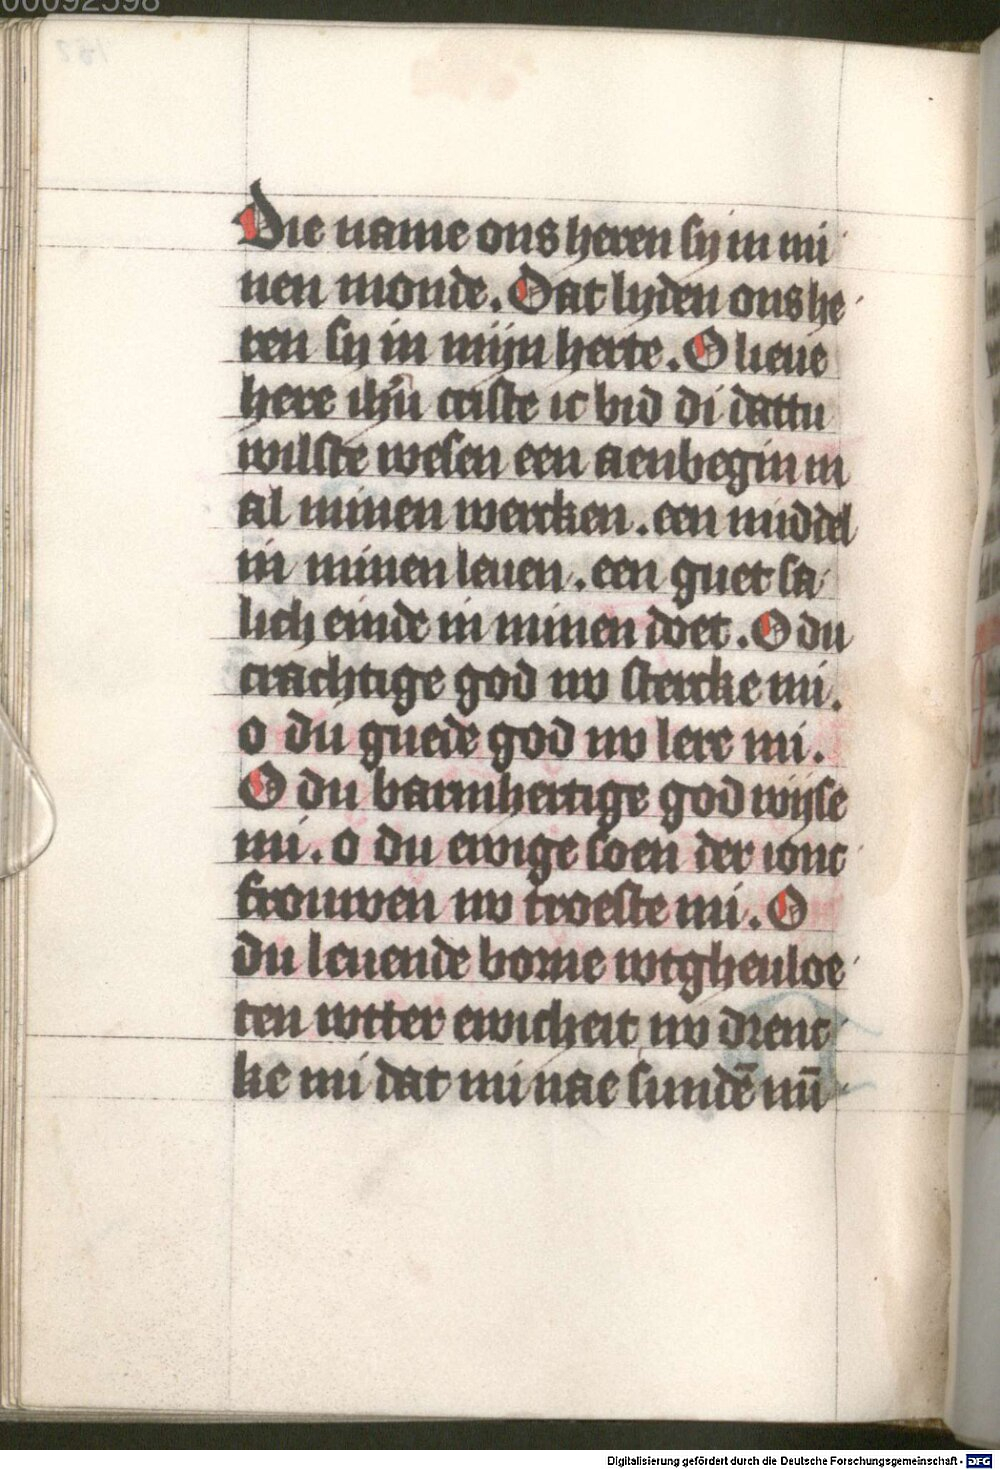 00092598
Die name ons heren sy in mi
nen monde. Dat lyden ons he
ren sy in mijn herte. O lieue
here ihu criste ic bid di dattu
wilste wesen een aenbegin in
al minen wercken. een middel
in minen leuen. een guet sa
lich einde in minen doet. O du
crachtige god nv stercke mi.
o du guede god nv lere mi.
O du barmhertige god wijse
mi. o du ewige soen der ionc
frouwen nv troeste mi. O
du leuende borne wtghenloe
ten wtter ewicheit nv drenc
ke mi dat mi nae sundē nū
Digitalisierung gefördert durch die Deutsche Forschungsgemeinschaft - DFG